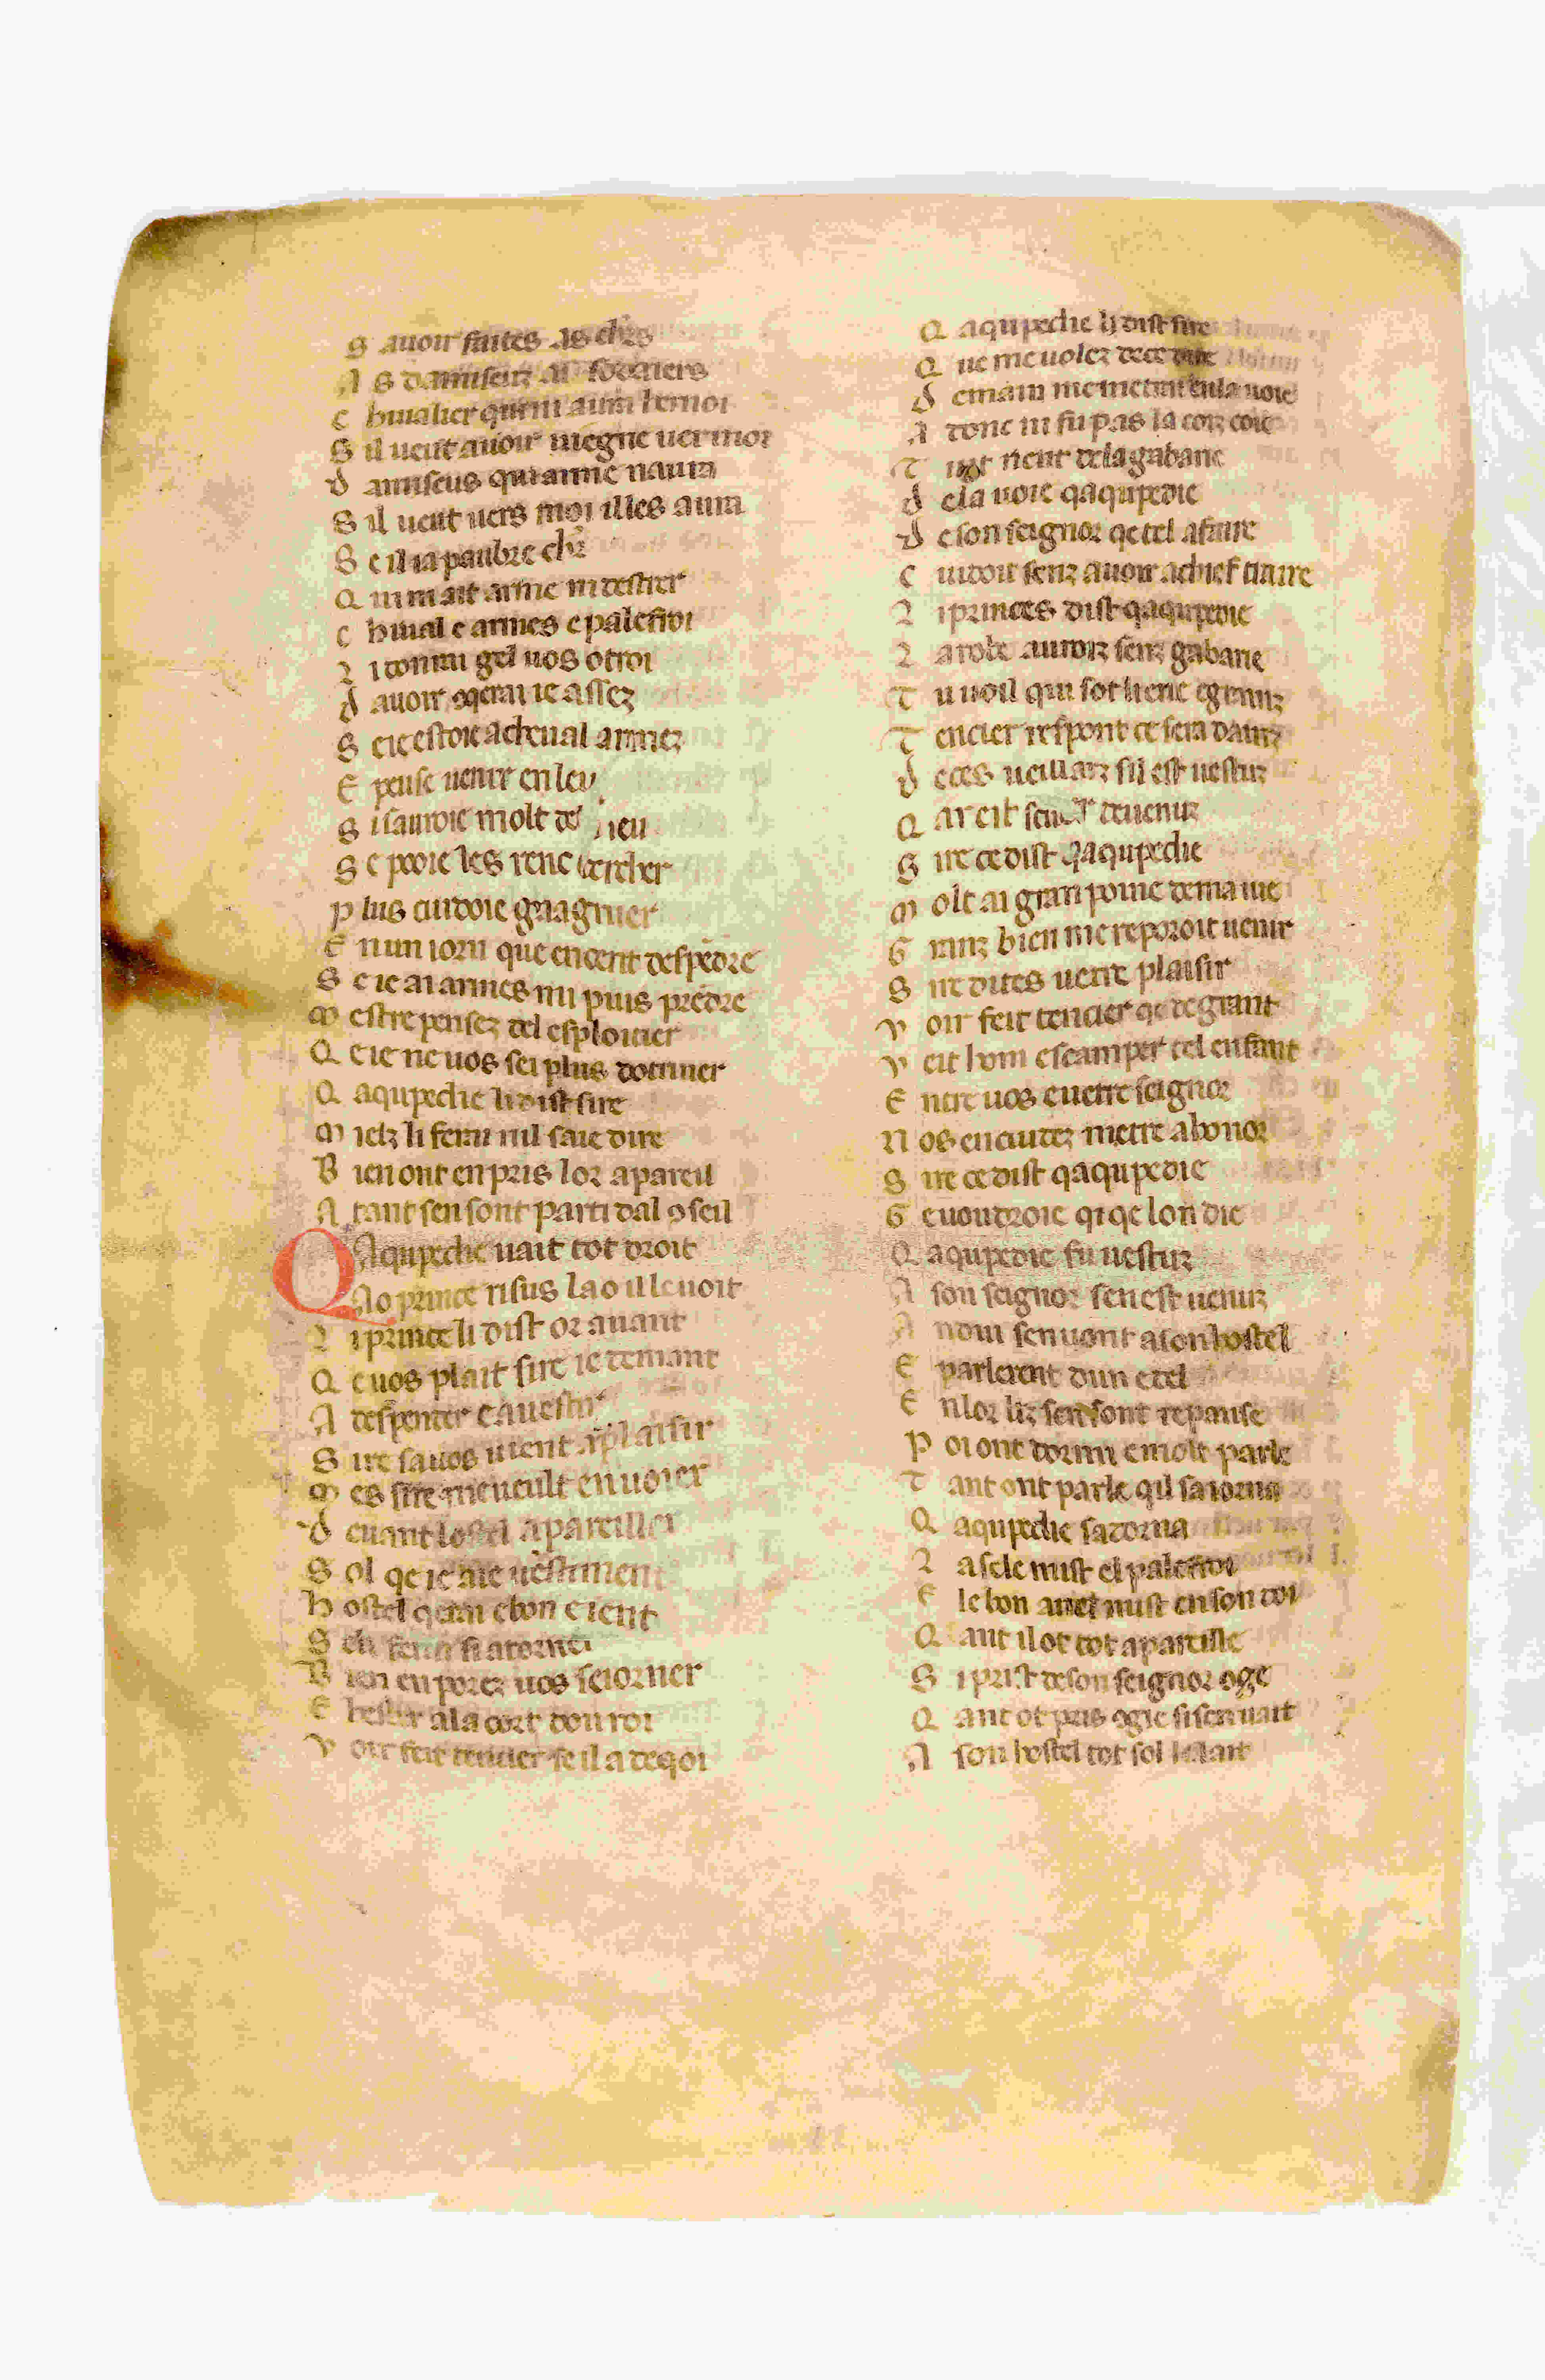 S auoir faites as ch'rs
A s damiseus
C hiualier qi
S il ueut auoir uiegne uer moi
d amiseus qui arme naura
S il ueut uers moi illes aura
S e il ia paubre ch'r
Q ui nait arme ni destrier
C hiual e armes e palefroi
L i donrai gel uos otroi
d auoir ꝯqerai ie assez
S e ie estoie a cheual armez
E peuse uenir en leu
S i sauroie molt de ieu
S e poie les renc cercher
P lus cuidoie guagnier
E n un iorn que en cent despēdre
S e ie ai armes nu puis prēdre
M estre pensez del esploitier
Q e ie ne uos sei plus doctriner
Q aqupedie li dist sire
M ielz li ferai nil saie dire
B ien ont enpris lor apareil
A tant sen sont parti dal ꝯseil
Q Aqupedie uait tot droit
Ao prince risus la o il le uoit
L i prince li dist or auant
Q e uos plait sire ie demant
A despender e a uestir
S ire sa uos uient a plaisir
M es sire me ueult enuoier
d euant lostel apareiller
S ol qe ie aie uestiment
H ostel qerai e bon e ient
S eli ferai si atorner
B ien en porez uos seiorner
E bestir a la cort dou roi
V oir feit tencier se il a de qoi
Q aqupedie li dist sire
Q ue me uolez dece dire
d emain me metrai en la uoie
A donc ni fu pas la corz coie
T uit rient de la gabane
d e la uoie qaqupedie
d e son seignor qe tel afaire
C uidoit senz auoir a chief traire
L i princes dist qaqupedie
L a robe auroiz senz gabarie
T u uoil qui sot li ene e granz
T encier respont ce sera danz
d e ces ueillarz sil est uestuz
Q ar eit seit deuenuz
S ire ce dist qaqupedie
M olt ai gran poine de ma uie
G ranz bien me reporoit uenir
S ire dites uetre plaisir
V oir feit tencier qe de grant
V eit hom escamper tel enfant
E ntre uos e uetre seignor
N os en cuidez metre a honor
S ire ce dist qaqupedie
G e uoudroie qi qe lon die
Q aqupedie fu uestuz
A son seignor sen est uenuz
A noui sen uont a son hostel
E parlerent dun e del
E n lor liz sen sont repause
P oi ont dormi e molt parle
T ant ont parle qil saiorna
Q aqupedie satorna
L a sele mist el palefroi
E le bon anel mist en son doi
Q ant il ot tot apareille
S i prist de son seignor ꝯge
Q ant ot pris ꝯgie si sen uait
A son hostel tot sol le lait